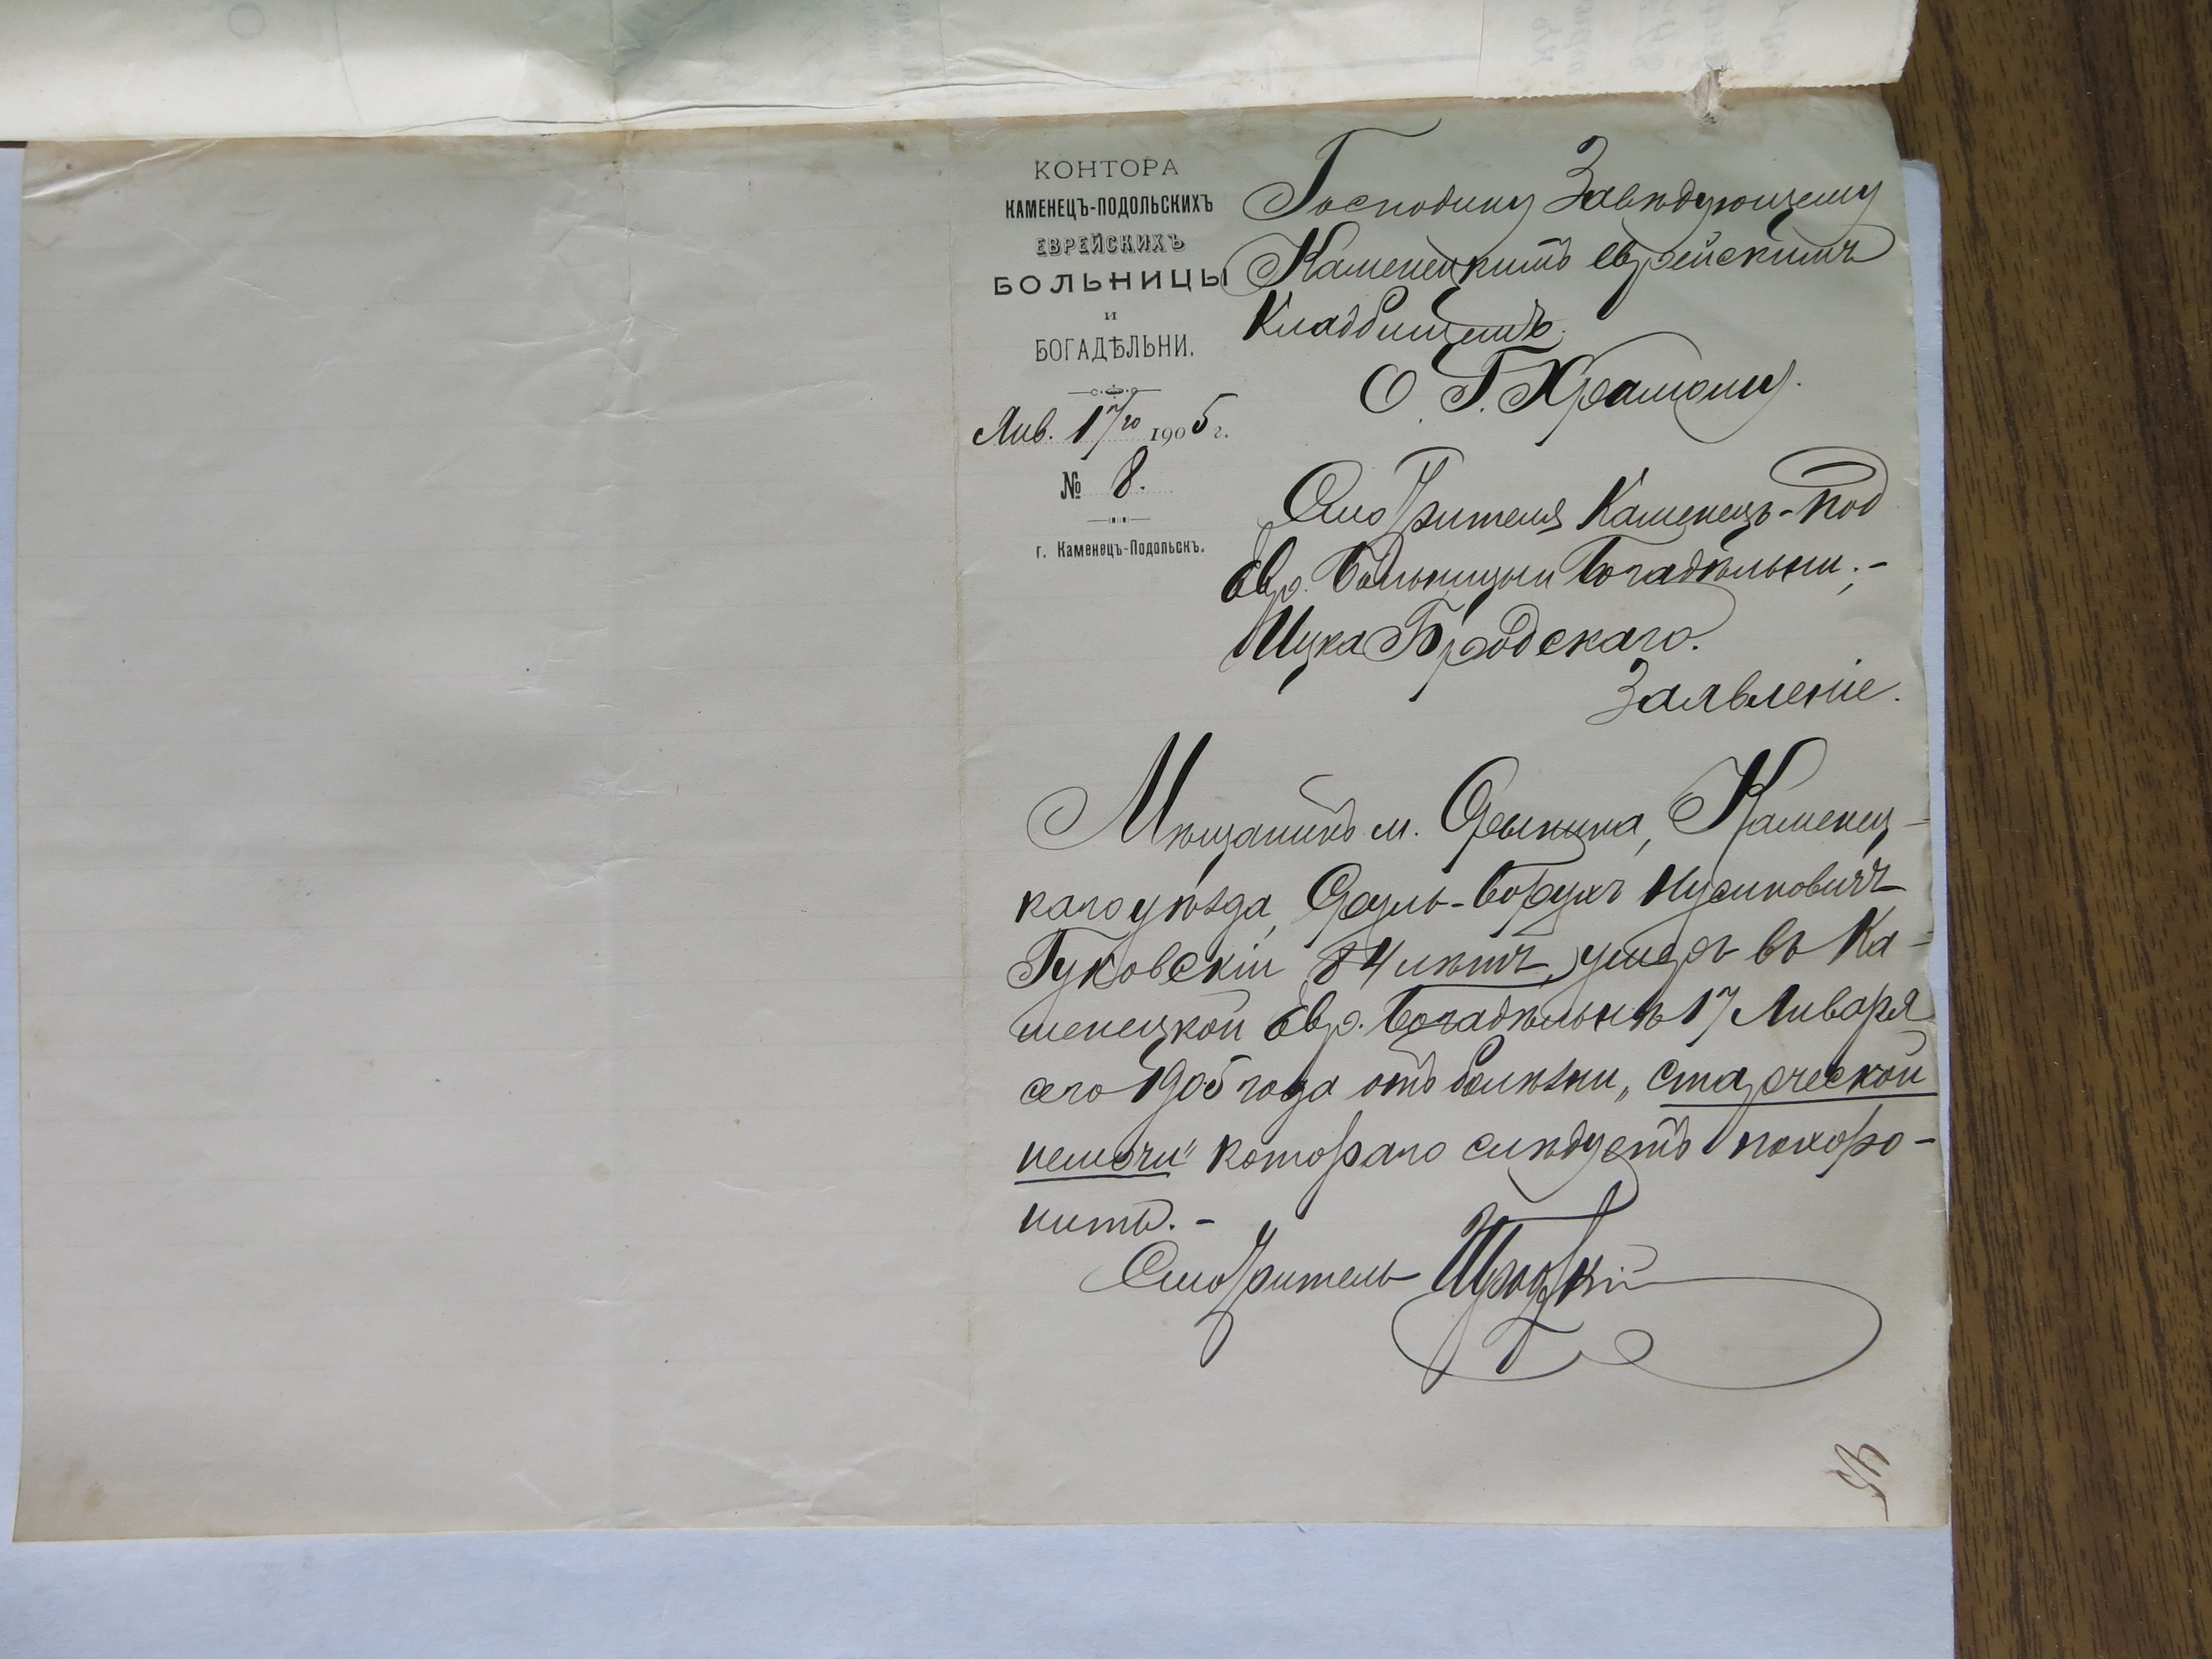 КОНТОРА
КАМЕНЕЦЪ-ПОДОЛЬСКИХЪ
ЕВРЕЙСКИХЪ
БОЛЬНИЦЫ
и
БОГАДѢЛЬНИ.
Янв. 17/20 1905 г.
№ 8.
г. Каменецъ-Подольскъ.
Господину Завѣдующему
Каменецкимъ еврейскимъ
Кладбищемъ.
О. Г. Храмому.
Смотрителя Каменецъ-Под
Евр. Больницы и Богадѣльни.-
Ицка Бродскаго.
Заявленіе.
Мѣщанинъ м. Орынина, Каменец-
каго уѣзда, Сруль-Борухъ Нусиновичъ
Гуковскій 84 лѣтъ, умеръ въ Ка-
менецкой Евр. Богадѣльнѣ 17 Января
сего 1905 года отъ болѣзни „старческой
немочи" котораго слѣдуетъ похоро-
нить.-
Смотритель